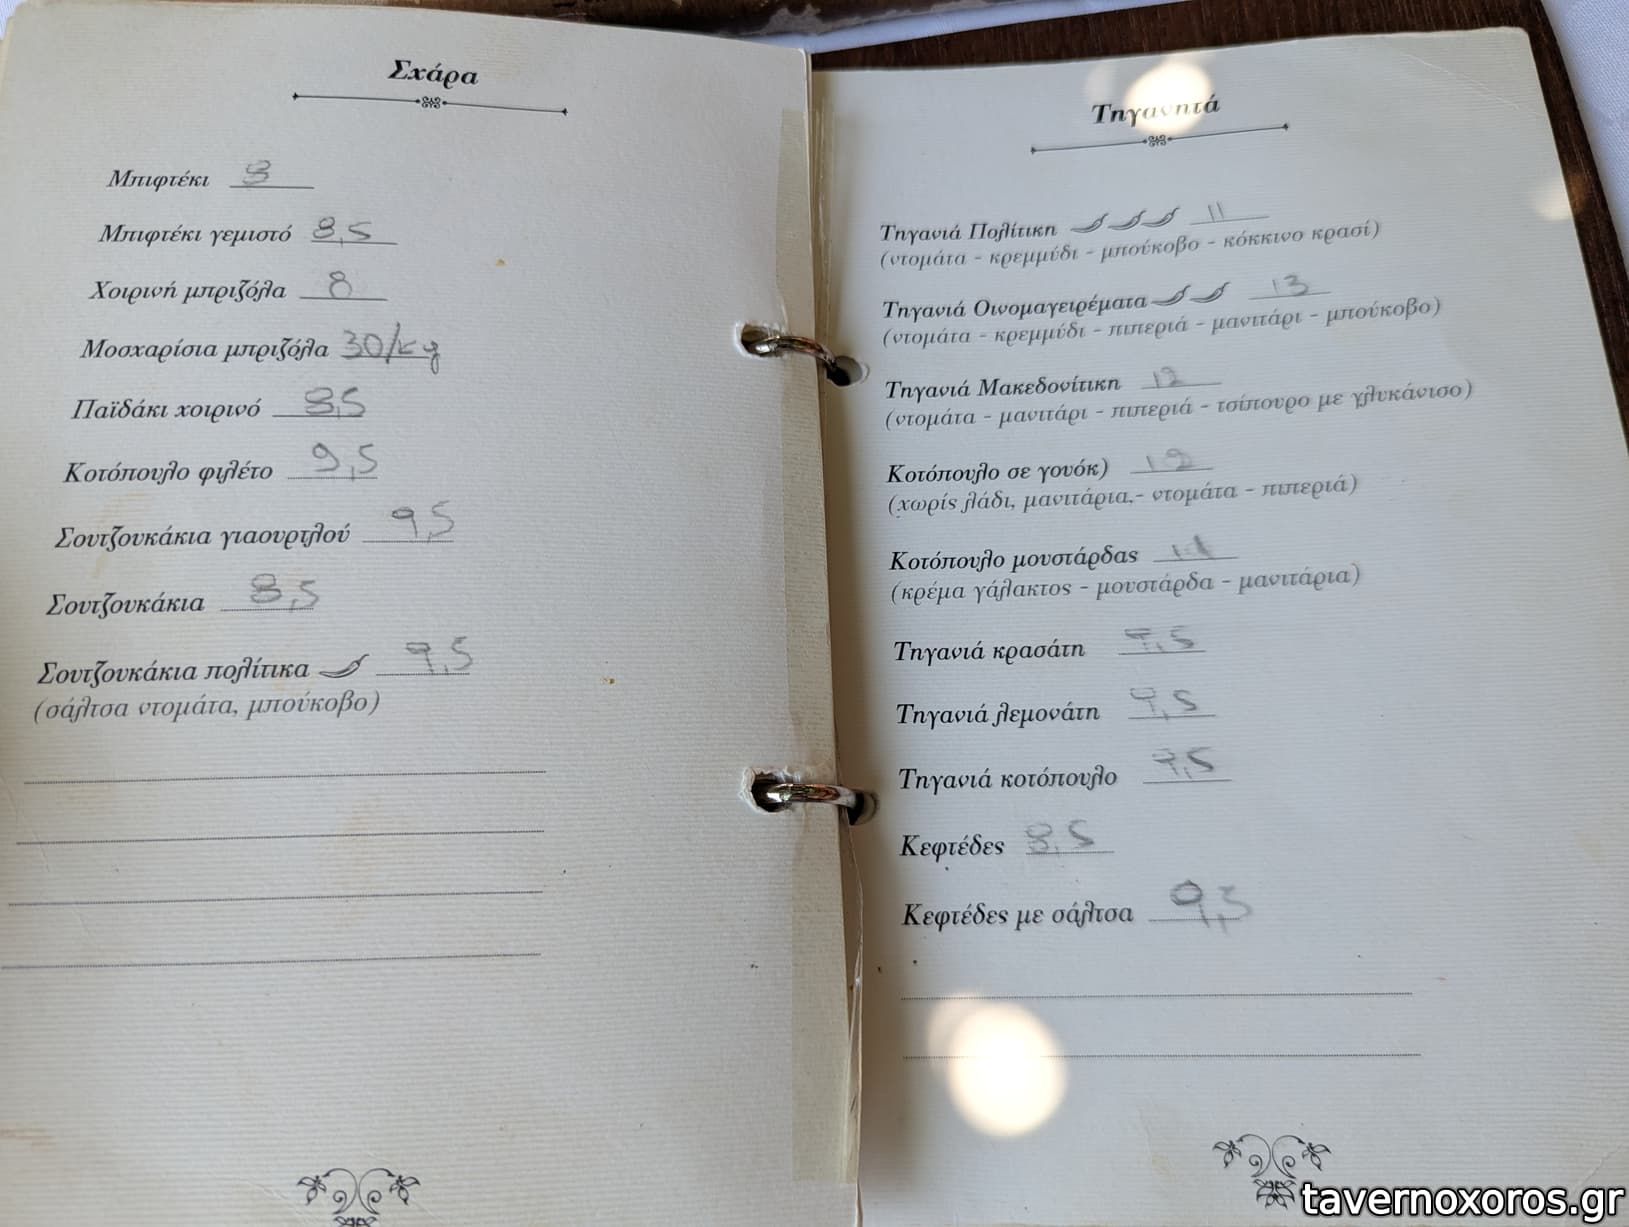 Σχάρα
Μπιφτέκι 8
Μπιφτέκι γεμιστό 8,5
Χοιρινή μπριζόλα 8
Μοσχαρίσια μπριζόλα 30/kg
Παϊδάκι χοιρινό 8,5
Κοτόπουλο φιλέτο 9,5
Σουτζουκάκια γιαουρτλού 9,5
Σουτζουκάκια 8,5
Σουτζουκάκια πολίτικα 9,5
(σάλτσα ντομάτα, μπούκοβο)
Τηγανητά
Τηγανιά Πολίτικη 11
(ντομάτα - κρεμμύδι - μπούκοβο - κόκκινο κρασί)
Τηγανιά Οινομαγειρέματα 13
(ντομάτα - κρεμμύδι - πιπεριά - μανιτάρι - μπούκοβο)
Τηγανιά Μακεδονίτικη 12
(ντομάτα - μανιτάρι - πιπεριά - τσίπουρο με γλυκάνισο)
Κοτόπουλο σε γουόκ) 12
(χωρίς λάδι, μανιτάρια,- ντομάτα - πιπεριά)
Κοτόπουλο μουστάρδας
(κρέμα γάλακτος - μουστάρδα - μανιτάρια)
Τηγανιά κρασάτη 9,5
Τηγανιά λεμονάτη 9,5
Τηγανιά κοτόπουλο 9,5
Κεφτέδες 8,5
Κεφτέδες με σάλτσα
tavernoxoros.gr